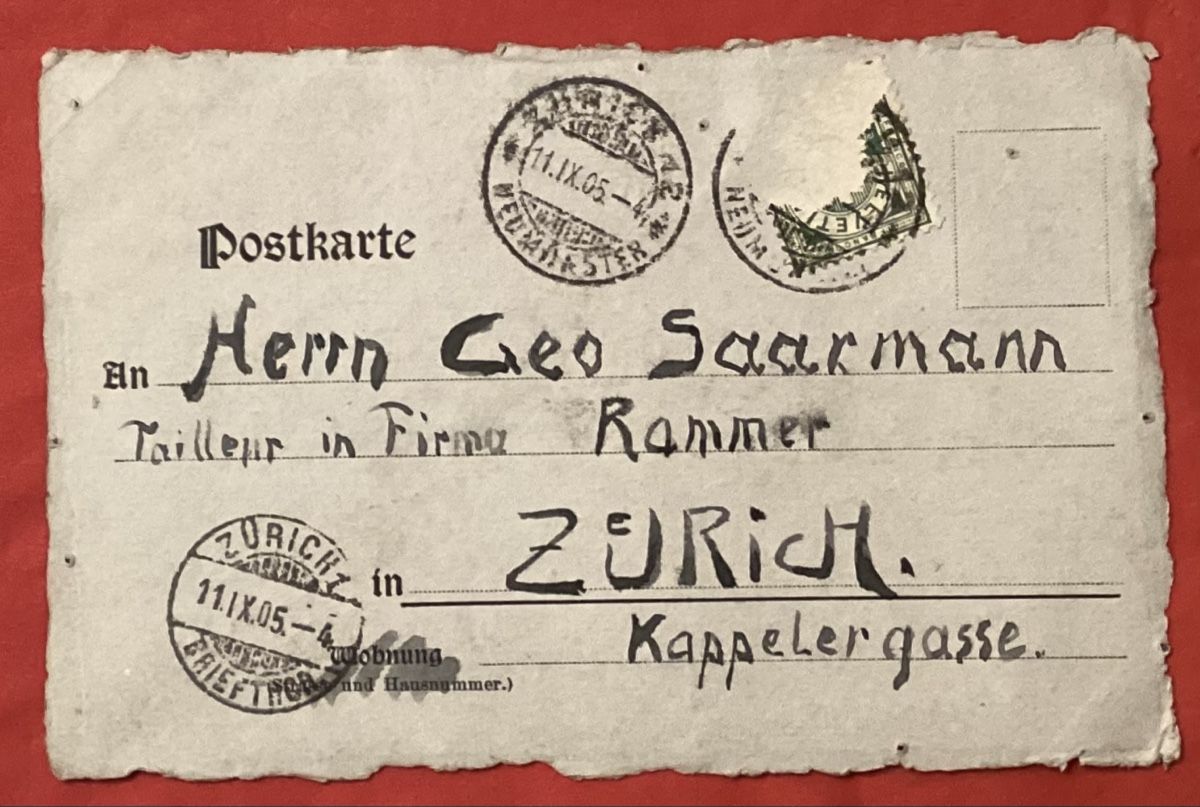 ZÜRICH 12
11.IX.05.—4
NEUMÜNSTER
NEUM
HELVETI
Postkarte
An Herrn Geo Saarmann
Tailleur in Firma Rammer
ZÜRICH 1
11.IX.05.—4
BRIEFTRÄGER
in ZÜRicH.
Wohnung Kappelergasse.
und Hausnummer.)